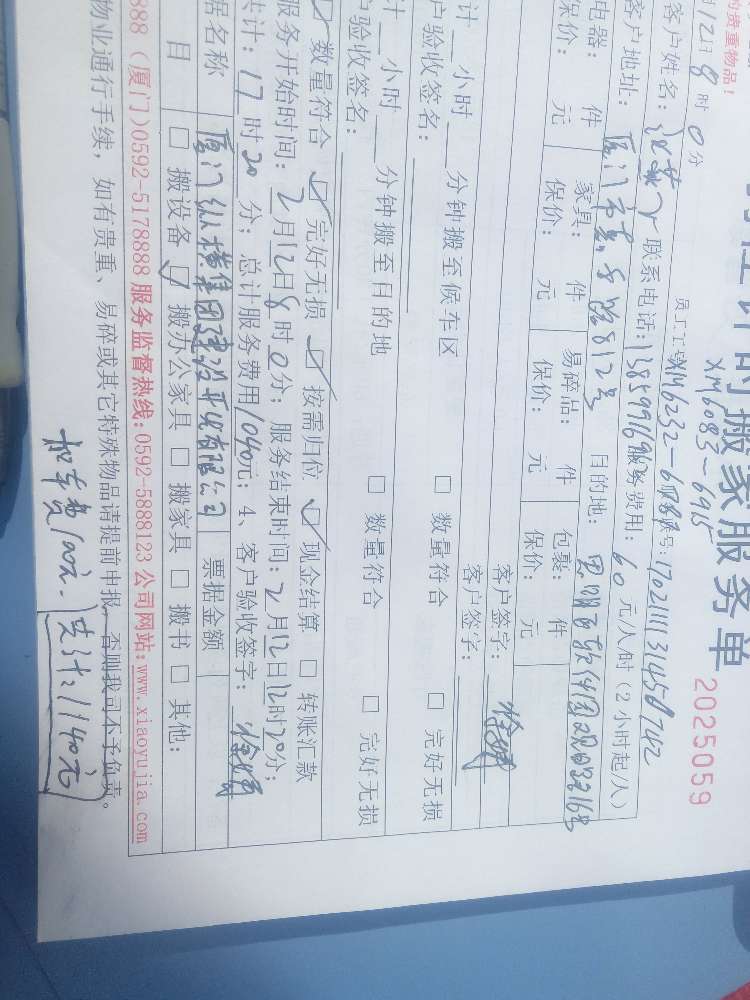 的贵重物品!
计时搬家服务单
2025059
XM6083-6915
月12日8时0分 员工工号:XM6232-6881
客户姓名: 联系电话: 服务费用:60元/人/时(2小时起/人)
客户地址:厦门市 路812号 目的地:思明区软件园观日路16号
电器: 件 家具: 件 易碎品: 件 包裹: 件
保价: 元 保价: 元 保价: 元 保价: 元
客户签字:
计 小时 分钟搬至候车区 □ 数量符合 □ 完好无损
客户验收签名: 客户签字:
计 小时 分钟搬至目的地 □ 数量符合 □ 完好无损
户验收签名:
☑ 数量符合 ☑ 完好无损 ☑ 按需归位 ☑ 现金结算 □ 转账汇款
服务开始时间:2月12日8时0分; 服务结束时间:2月12日12时20分;
共计:17时20分; 总计服务费用1040元; 4、客户验收签字:
据名称 厦门纵横集团建设开发有限公司 票据金额
目 □ 搬设备 ☑ 搬办公家具 □ 搬家具 □ 搬书 □ 其他:
888 (厦门)0592-5178888 服务监督热线:0592-5888123 公司网站:www.xiaoyujia.com
物业通行手续, 如有贵重、易碎或其它特殊物品请提前申报, 否则我司不予负责。
和车费100元. 共计:1140元